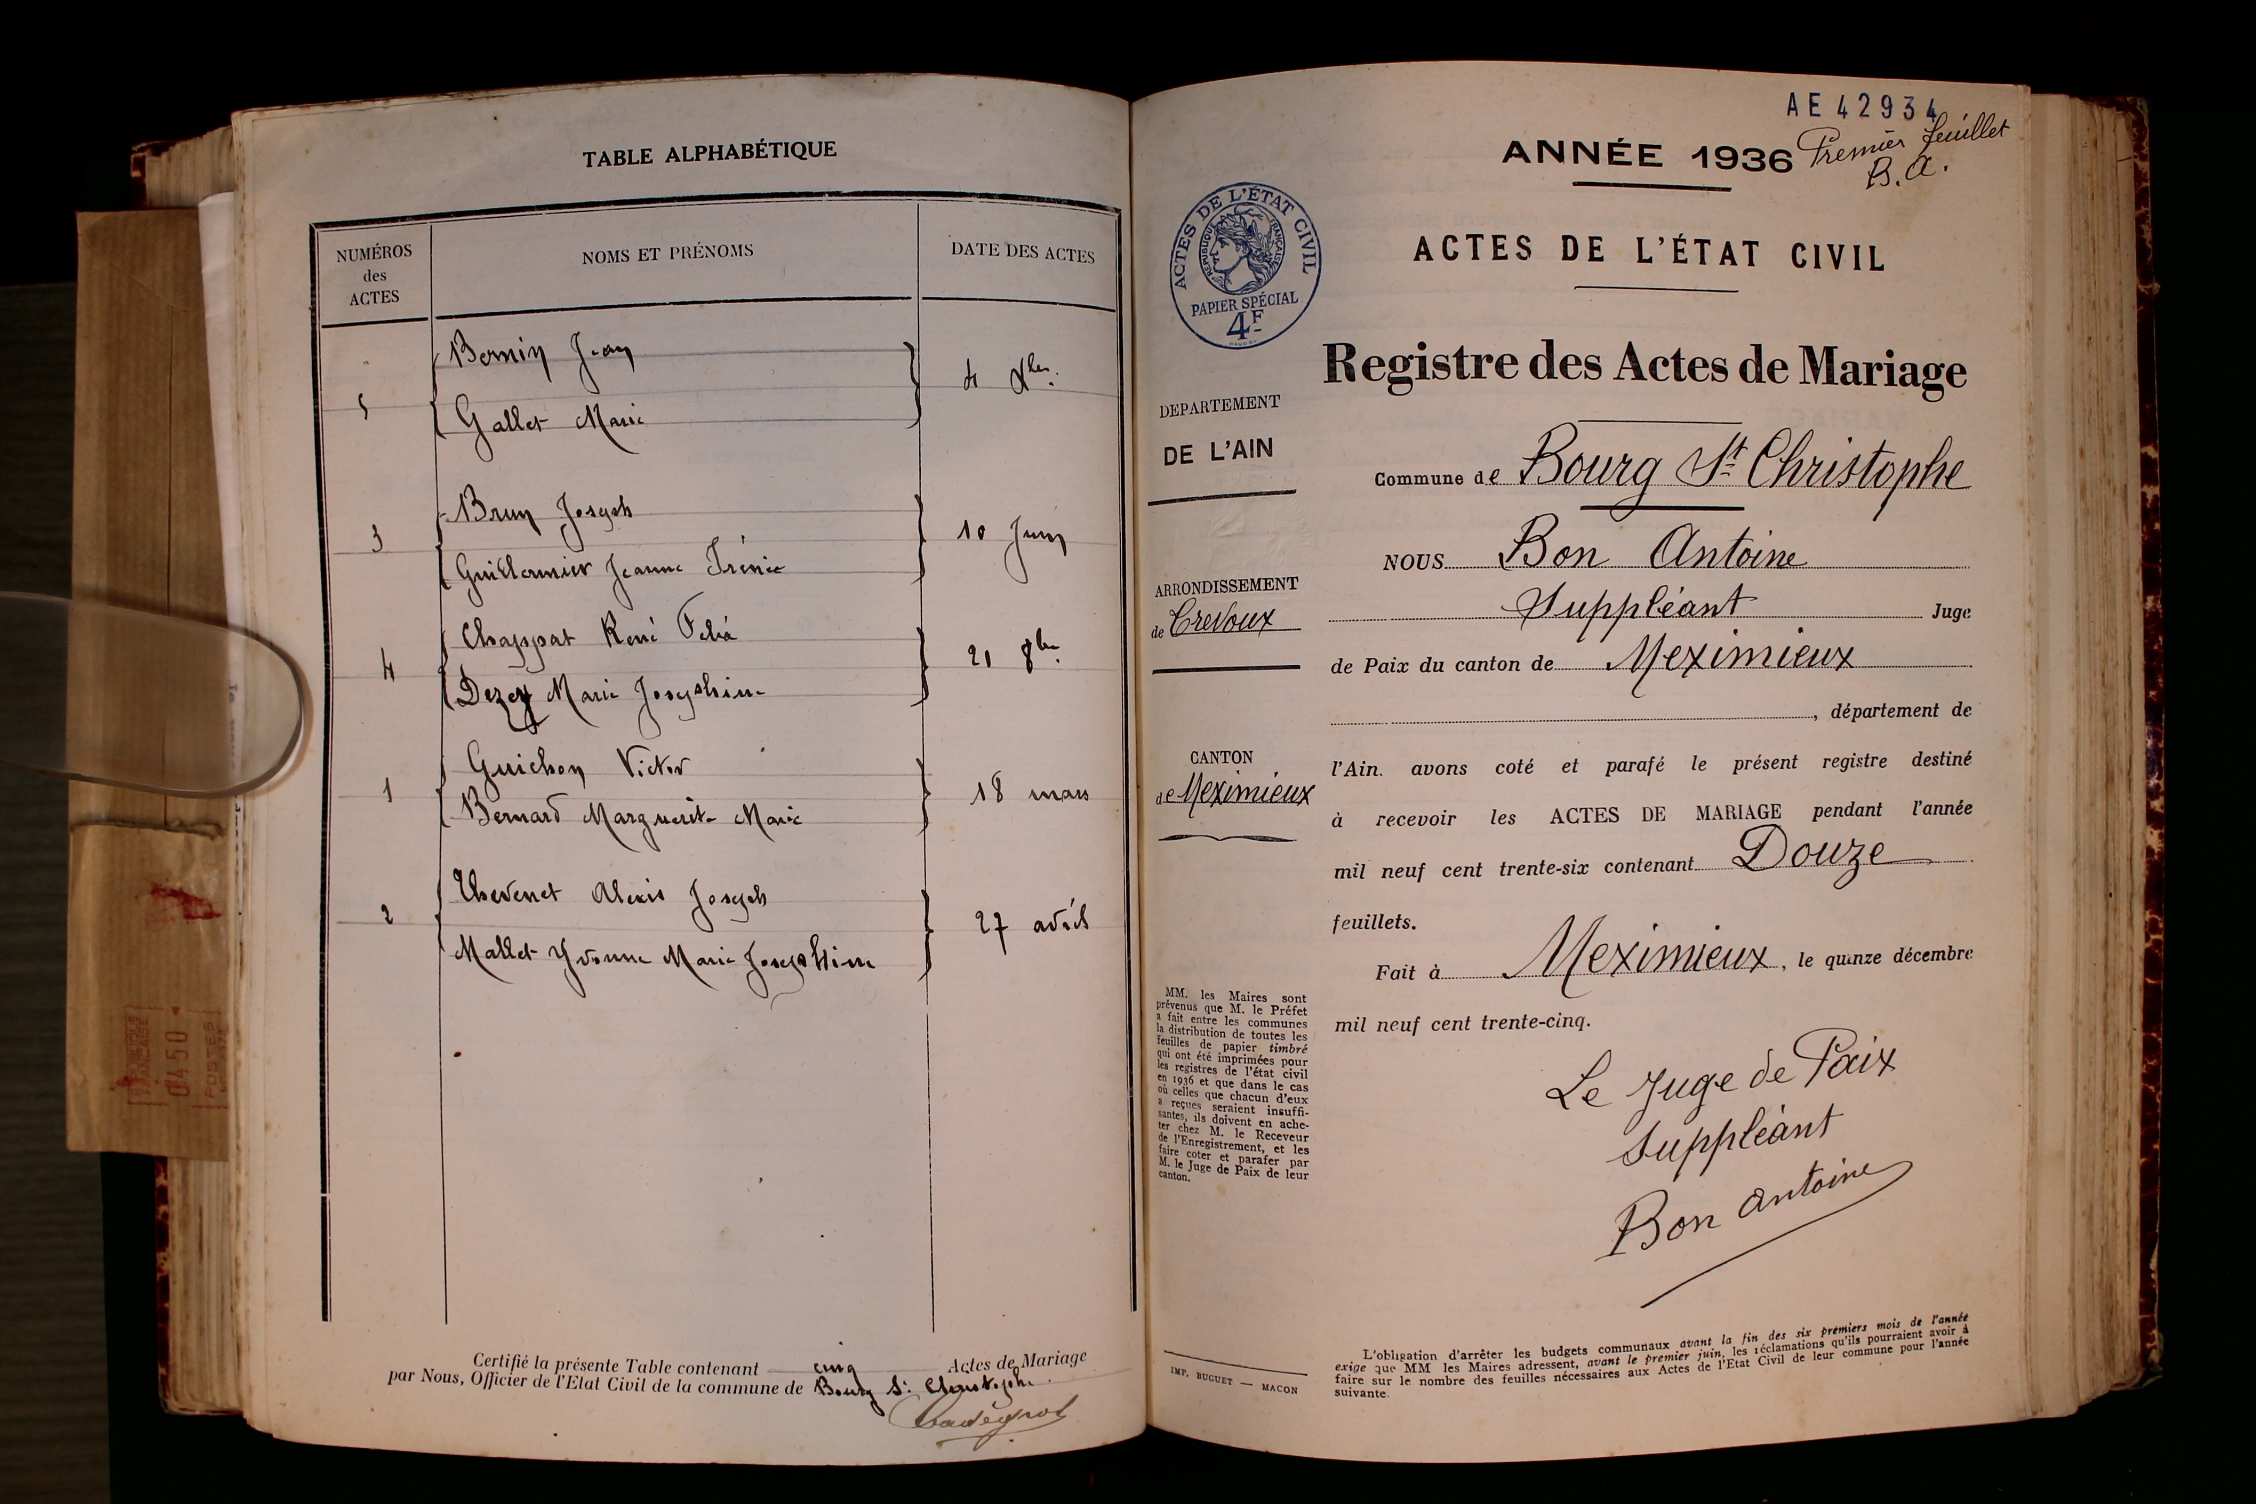 TABLE ALPHABÉTIQUE
NUMÉROS
des
ACTES
NOMS ET PRÉNOMS
DATE DES ACTES
Bernin Jean
5
4 Xbre.
Gallet Marie
Brun Joseph
3
10 Juin
Guillermier Jeanne Irénée
Chappat René Félix
4
21 8bre.
Dezey Marie Josephine
Guichon Victor
1
18 mars
Bernard Marguerite Marie
Thevenet Alexis Joseph
2
27 avril
Mallet Yvonne Marie Josephine
Certifié la présente Table contenant cinq Actes de Mariage
par Nous, Officier de l'Etat Civil de la commune de Bourg St Christophe.
0450
POSTES
AE 42934
ANNÉE 1936
Premier feuillet
B. A.
ACTES DE L'ÉTAT CIVIL
RÉPUBLIQUE FRANÇAISE
PAPIER SPÉCIAL
4F
ACTES DE L'ÉTAT CIVIL
Registre des Actes de Mariage
DEPARTEMENT
DE L'AIN
Commune de Bourg St Christophe
NOUS Bon Antoine
ARRONDISSEMENT
de Trévoux
Suppléant Juge
de Paix du canton de Meximieux
, département de
CANTON
de Meximieux
l'Ain. avons coté et parafé le présent registre destiné
à recevoir les ACTES DE MARIAGE pendant l'année
mil neuf cent trente-six contenant Douze
feuillets.
Fait à Meximieux, le quinze décembre
mil neuf cent trente-cinq.
MM. les Maires sont
prévenus que M. le Préfet
a fait entre les communes
la distribution de toutes les
feuilles de papier timbré
qui ont été imprimées pour
les registres de l'état civil
en 1936 et que dans le cas
où celles que chacun d'eux
a reçues seraient insuffi-
santes, ils doivent en ache-
ter chez M. le Receveur
de l'Enregistrement, et les
faire coter et parafer par
M. le Juge de Paix de leur
canton.
Le Juge de Paix
Suppléant
Bon Antoine
IMP. BUGUET — MACON
L'obligation d'arrêter les budgets communaux avant la fin des six premiers mois de l'année
exige que MM les Maires adressent, avant le premier juin, les réclamations qu'ils pourraient avoir à
faire sur le nombre des feuilles nécessaires aux Actes de l'Etat Civil de leur commune pour l'année
suivante.